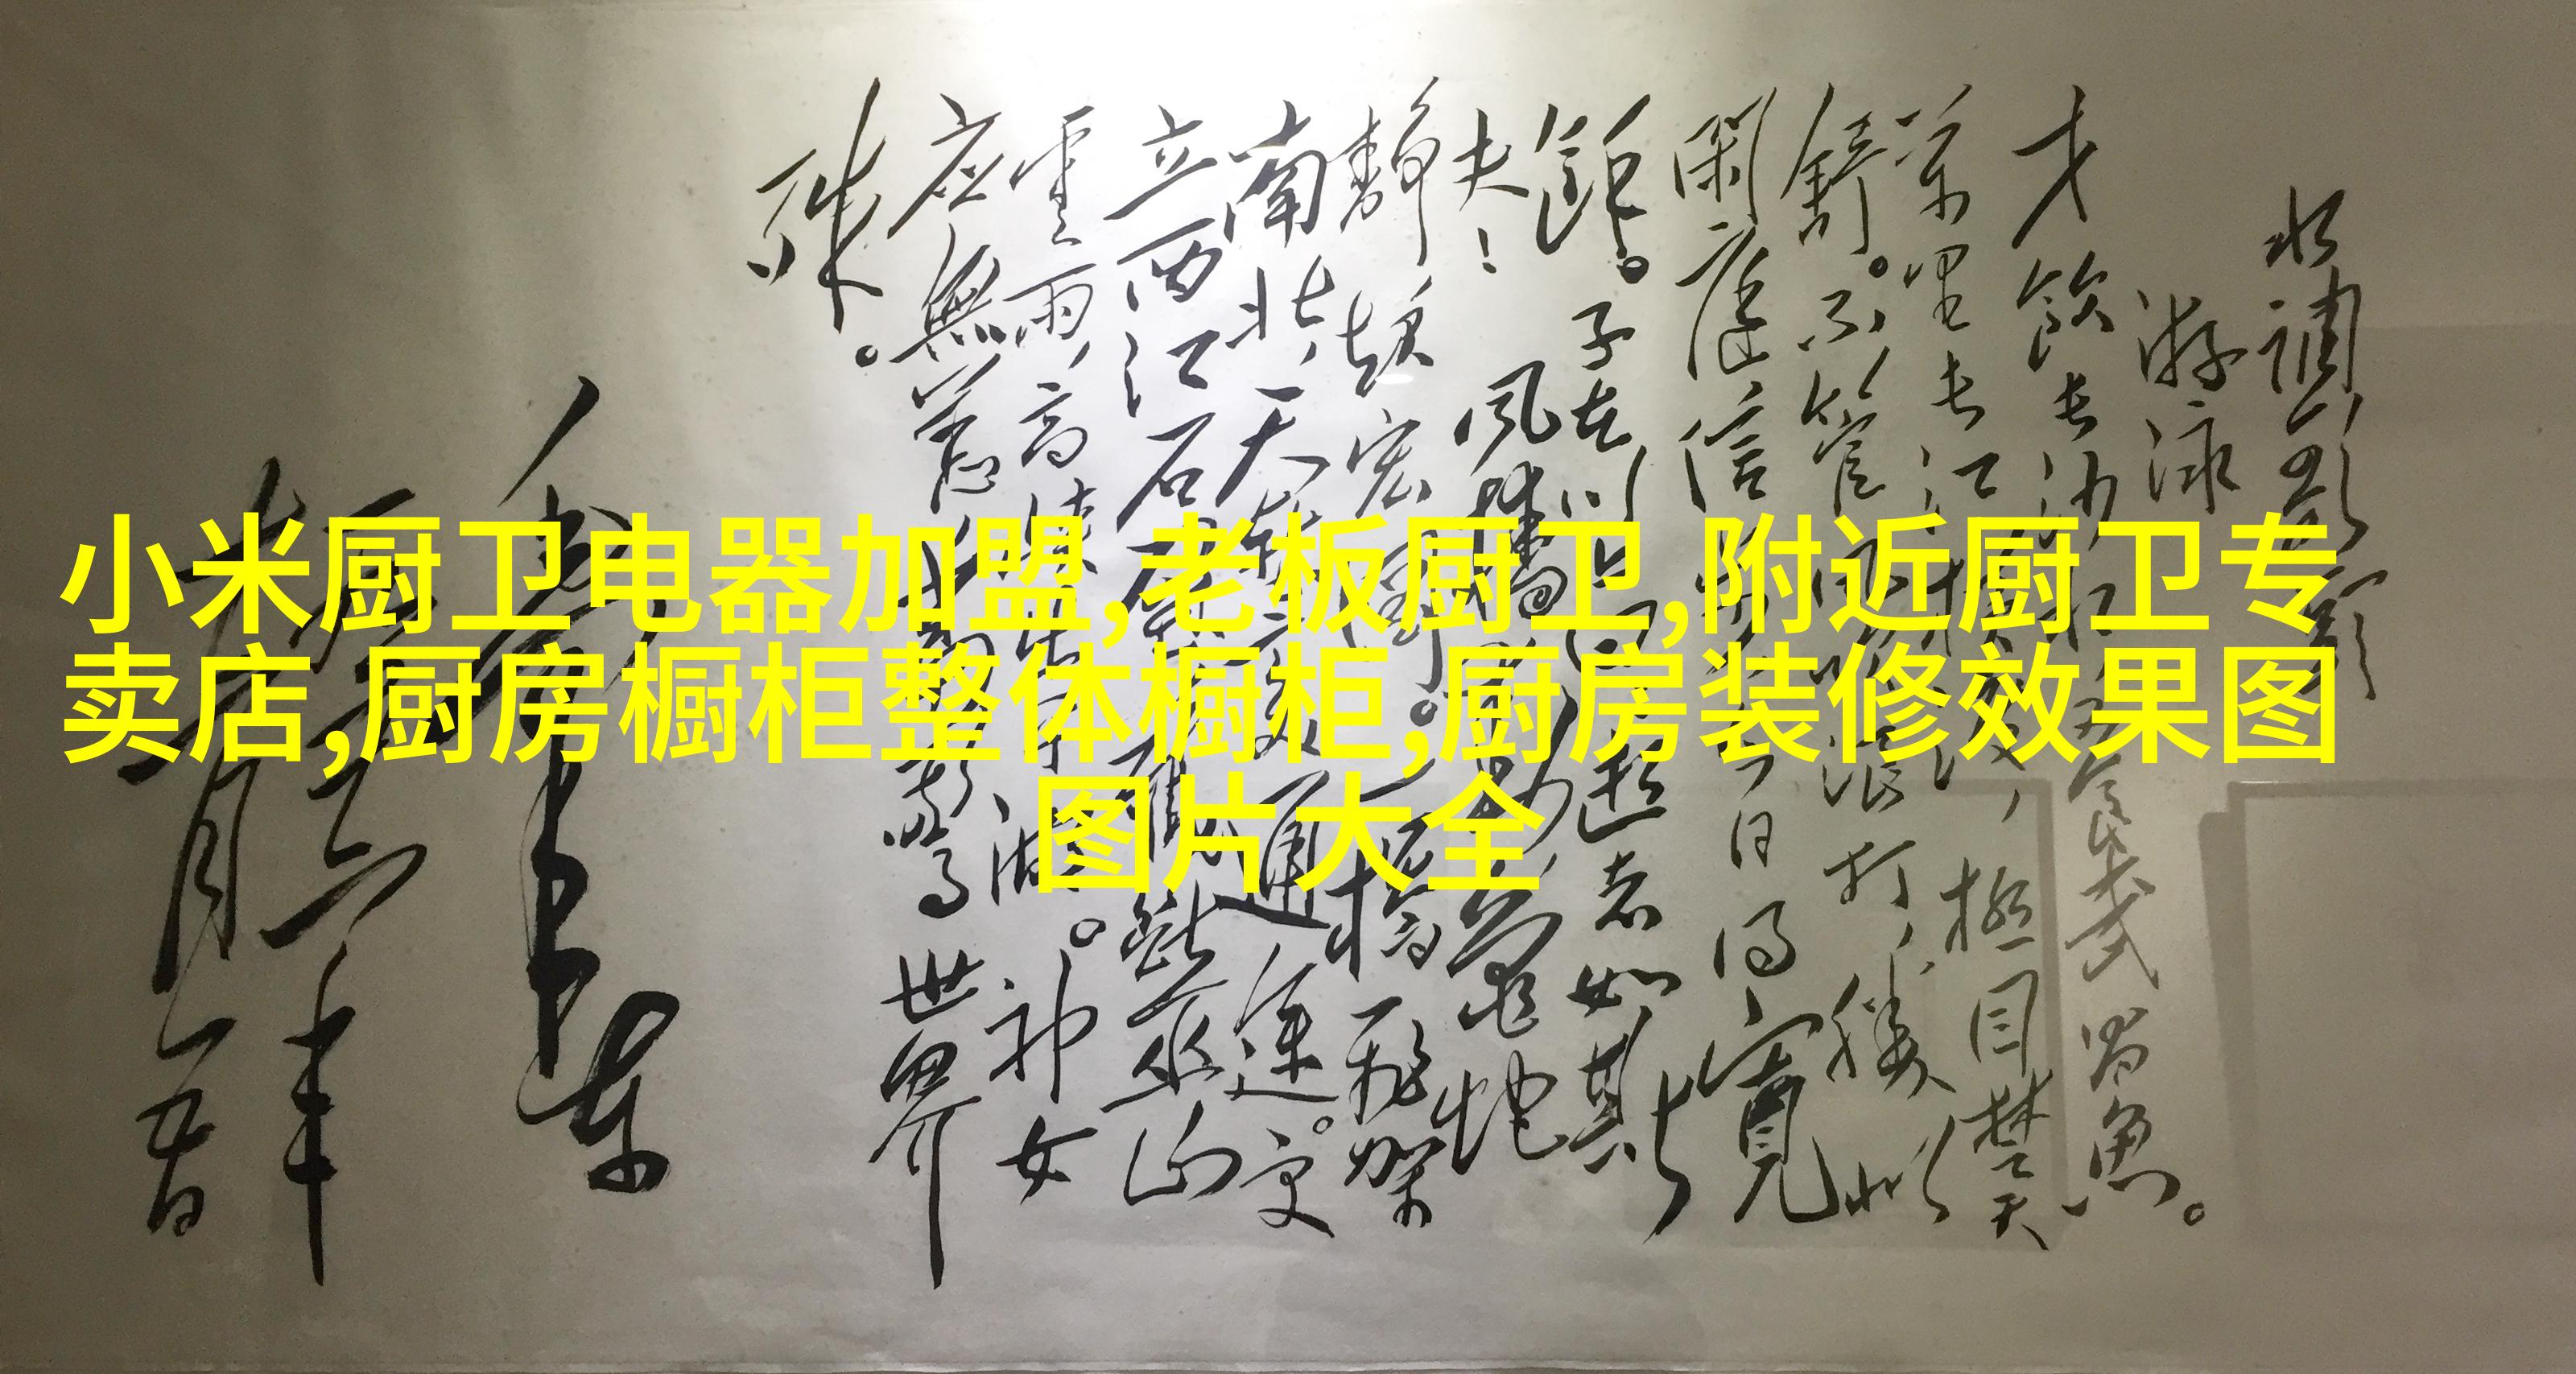 小米厨卫电器加盟,老板厨卫,附近厨卫专
卖店,厨房橱柜整体橱柜,厨房装修效果图
图片大全
水调歌头
游泳
才飲长沙水又食武昌魚。
萬里长江横渡,極目楚天
舒。不管風吹浪打,勝似
閑庭信步今日得寬
餘。子在川上曰逝者如斯
夫!風樯動,龜蛇
靜,起宏图。一橋飛架
南北,天堑变通途。更
立西江石壁,截断巫山
雲雨,高峡出平湖。神女
应無恙,當驚世界
殊。